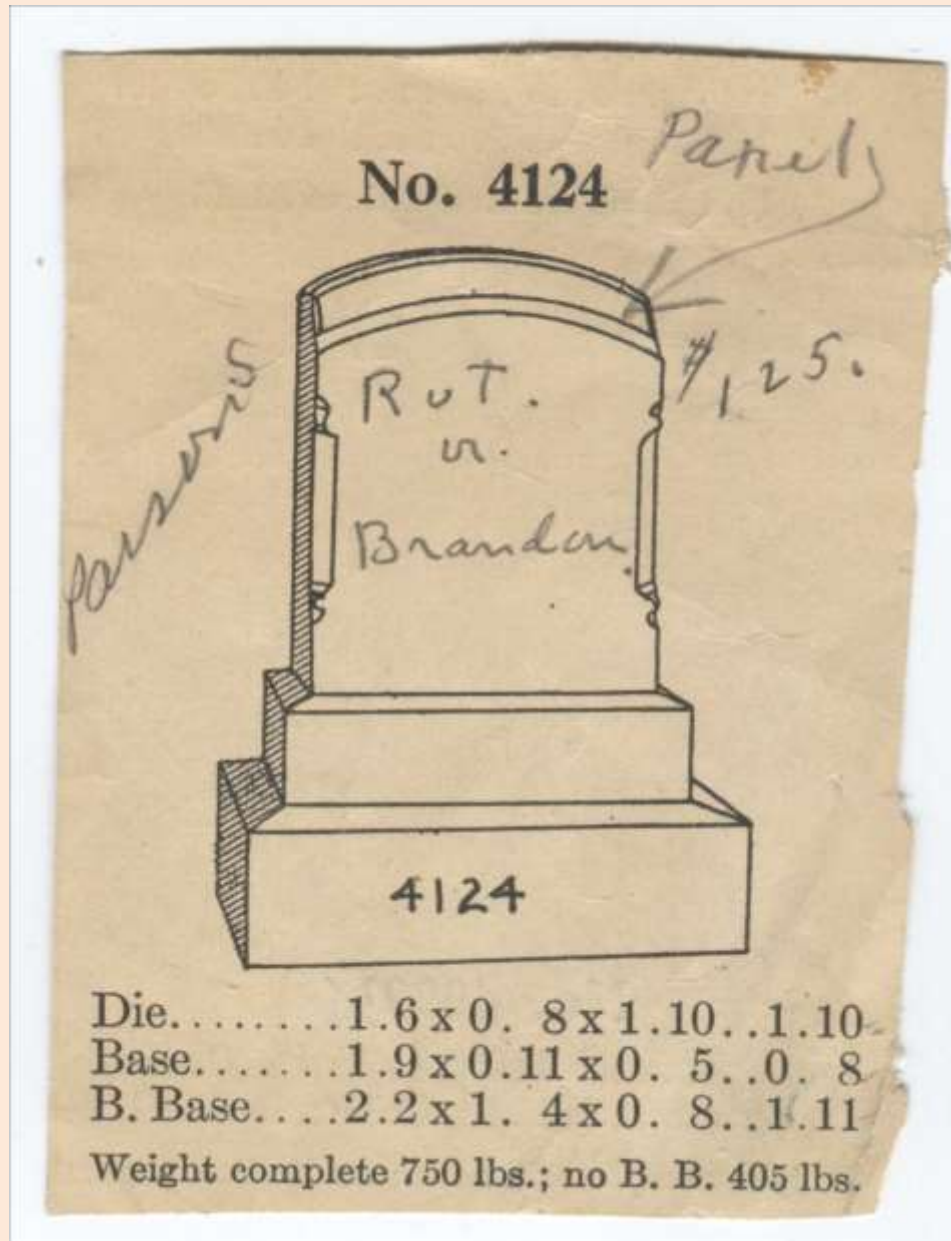 Panel
No. 4124
$125.
Parsons
Rut.
or.
Brandon.
4124
Die........1.6 x 0. 8 x 1.10..1.10
Base.......1.9 x 0.11 x 0. 5..0. 8
B. Base....2.2 x 1. 4 x 0. 8..1.11
Weight complete 750 lbs.; no B. B. 405 lbs.